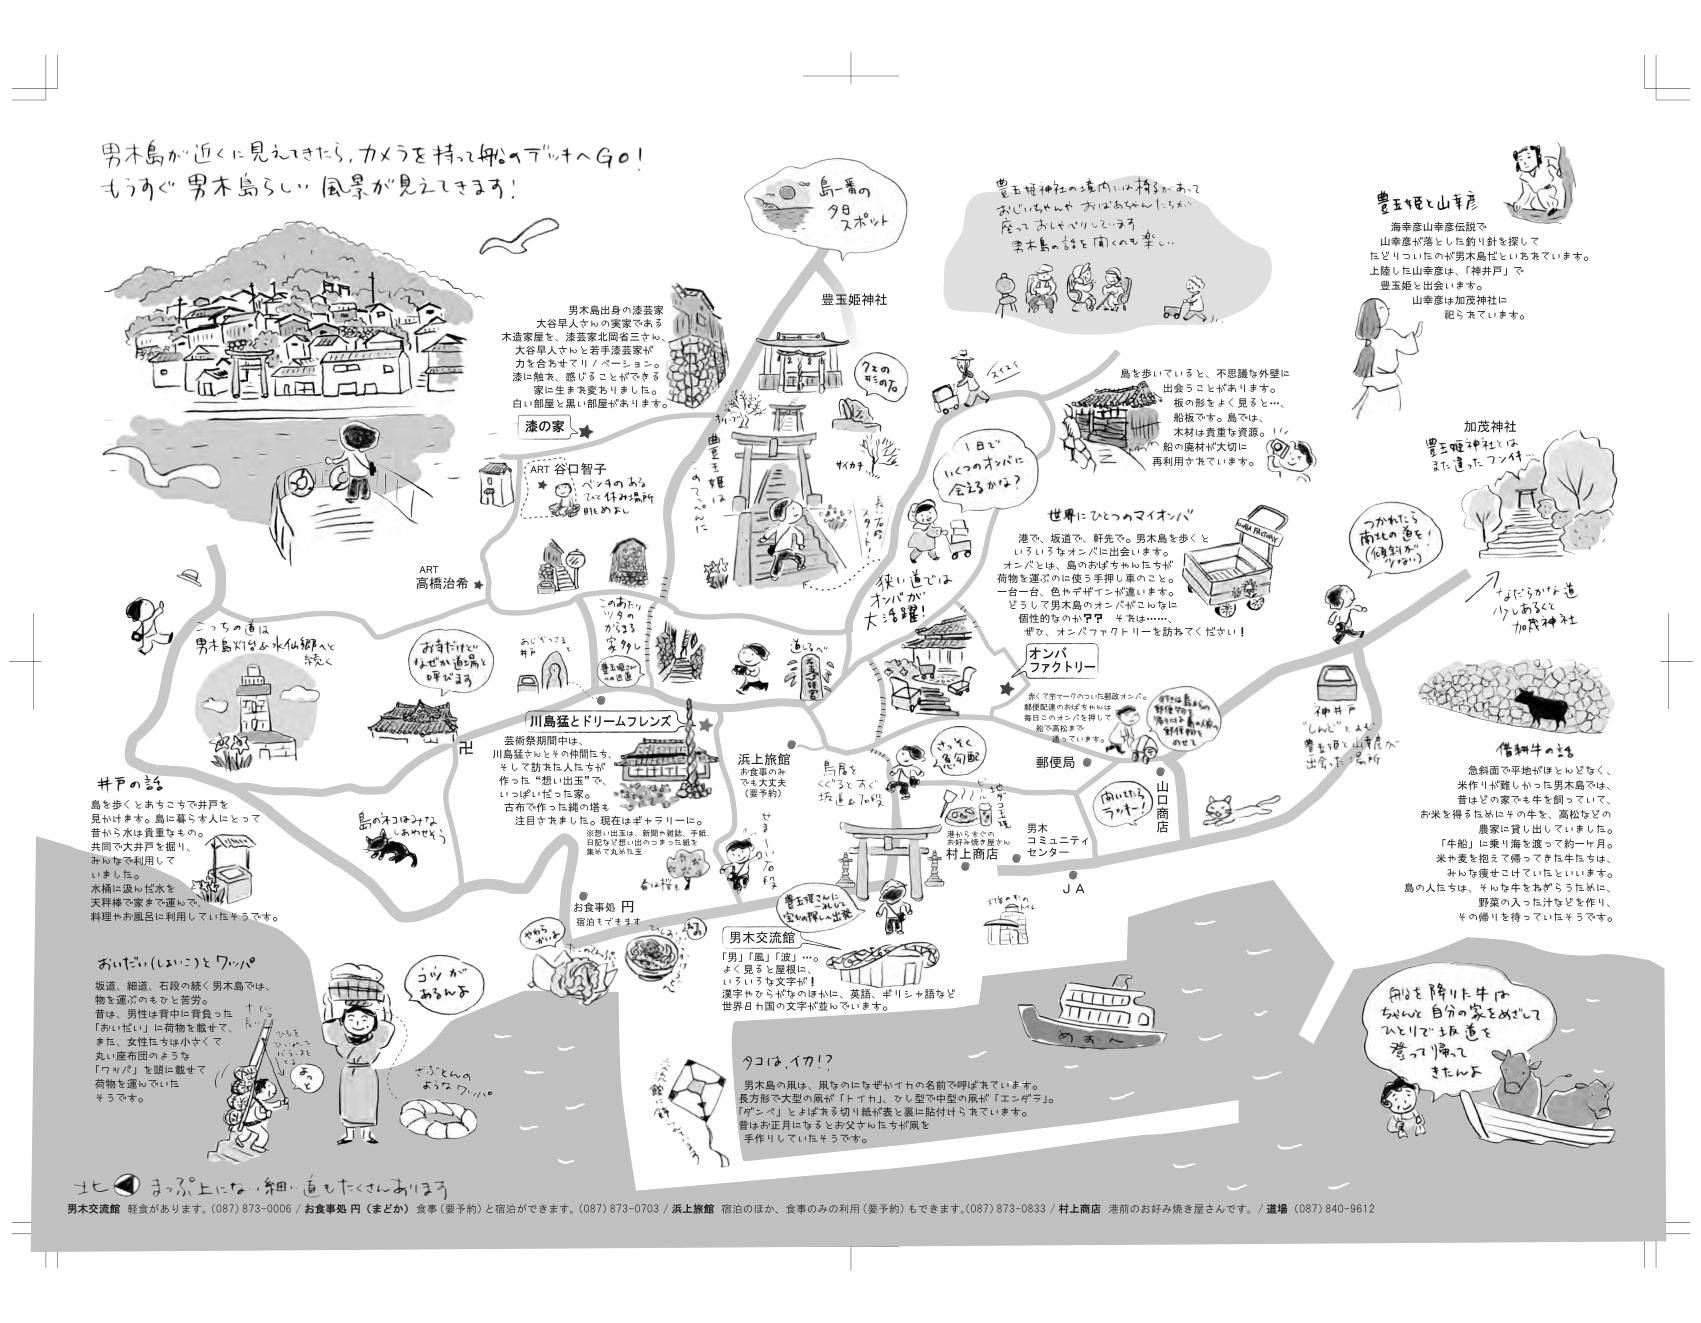 男木島が近くに見えてきたら、カメラを持って船のデッキへGO!
もうすぐ男木島らしい風景が見えてきます!
島一番の
夕日
スポット
豊玉姫神社
豊玉姫神社の境内には椅子があって
おじいちゃんや おばあちゃんたちが
座っておしゃべりしています
男木島の話を聞くのも楽しい
豊玉姫と山幸彦
海幸彦山幸彦伝説で
山幸彦が落とした釣り針を探して
たどりついたのが男木島だといわれています。
上陸した山幸彦は、「神井戸」で
豊玉姫と出会います。
山幸彦は加茂神社に
祀られています。
男木島出身の漆芸家
大谷早人さんの実家である
木造家屋を、漆芸家北岡省三さん、
大谷早人さんと若手漆芸家が
力を合わせてリノベーション。
漆に触れ、感じることができる
家に生まれ変わりました。
白い部屋と黒い部屋があります。
漆の家
ART 谷口智子
ベンチのある
ひと休み場所
眺めよし
ART
高橋治希
オリーブ
豊玉姫は
島のてっぺんに
クエの
形の石
サイカチ
長い石段
スタート!
スイスイ
1日で
いくつのオンバに
会えるかな?
狭い道では
オンバが
大活躍!
島を歩いていると、不思議な外壁に
出会うことがあります。
板の形をよく見ると…、
船板です。島では、
木材は貴重な資源。
船の廃材が大切に
再利用されています。
加茂神社
豊玉姫神社とは
また違ったフンイキ…
世界にひとつのマイオンバ
港で、坂道で、軒先で。男木島を歩くと
いろいろなオンバに出会います。
オンバとは、島のおばちゃんたちが
荷物を運ぶのに使う手押し車のこと。
一台一台、色やデザインが違います。
どうして男木島のオンバがこんなに
個性的なのか?? それは……、
ぜひ、オンバファクトリーを訪ねてください!
ONBA FACTORY
つかれたら
南北の道を!
(傾斜が
少ない)
なだらかな道
少しあるくと
加茂神社
こっちの道は
男木島灯台&水仙郷へと
続く
お寺だけど
なぜか道場と
呼びます
おじぞうさまと
井戸
このあたり
ツタの
からまる
家 多し
豊玉姫さん
への近道
道しるべ
オンバ
ファクトリー
赤くて〒マークのついた郵政オンバ。
郵便配達のおばちゃんは
毎日このオンバを押して
船で高松まで
通っています。
行きは島からの
郵便物を
帰りには島の人宛の
郵便物を
のせて
神井戸
“しんど”とよぶ
豊玉姫と山幸彦が
出会った場所
借耕牛の話
急斜面で平地がほとんどなく、
米作りが難しかった男木島では、
昔はどの家でも牛を飼っていて、
お米を得るためにその牛を、高松などの
農家に貸し出していました。
「牛船」に乗り海を渡って約一ヶ月。
米や麦を抱えて帰ってきた牛たちは、
みんな痩せこけていたといいます。
島の人たちは、そんな牛をねぎらうために、
野菜の入った汁などを作り、
その帰りを待っていたそうです。
川島猛とドリームフレンズ
芸術祭期間中は、
川島猛さんとその仲間たち、
そして訪れた人たちが
作った“想い出玉”で、
いっぱいだった家。
古布で作った縄の塔も
注目されました。現在はギャラリーに。
※想い出玉は、新聞や雑誌、手紙、
日記など想い出のつまった紙を
集めて丸めた玉
春は桜も
卍
浜上旅館
お食事のみ
でも大丈夫
(要予約)
鳥居を
くぐるとすぐ
坂道&石段
さっそく
急勾配
郵便局
開いてたら
ラッキー!
山口商店
井戸の話
島を歩くとあちこちで井戸を
見かけます。島に暮らす人にとって
昔から水は貴重なもの。
共同で大井戸を掘り、
みんなで利用して
いました。
水桶に汲んだ水を
天秤棒で家まで運んで、
料理やお風呂に利用していたそうです。
島のネコはみな
しあわせそう
せまーい石段
ビール
タコ玉焼
港からすぐの
お好み焼き屋さん
村上商店
男木
コミュニティ
センター
JA
お食事処 円
宿泊もできます
やわら
かいよ
豊玉姫さんに
一礼して
宝もの探しへ出発
男木交流館
「男」「風」「波」…。
よく見ると屋根に、
いろいろな文字が!
漢字やひらがなのほかに、英語、ギリシャ語など
世界8カ国の文字が並んでいます。
おいだい(しょいこ)とワッパ
坂道、細道、石段の続く男木島では、
物を運ぶのもひと苦労。
昔は、男性は背中に背負った
「おいだい」に荷物を載せて、
また、女性たちは小さくて
丸い座布団のような
「ワッパ」を頭に載せて
荷物を運んでいた
そうです。
コツが
あるんよ
よっと
ざぶとんの
ようなワッパ
めおん
タコは、イカ!?
男木島の凧は、凧なのになぜかイカの名前で呼ばれています。
長方形で大型の凧が「トイカ」、ひし型で中型の凧が「エンダラ」。
「ダンペ」とよばれる切り紙が表と裏に貼付けられています。
昔はお正月になるとお父さんたちが凧を
手作りしていたそうです。
船を降りた牛は
ちゃんと自分の家をめざして
ひとりで坂道を
登って帰って
きたんよ
北 まっぷ上にない細い道もたくさんあります
男木交流館 軽食があります。(087)873-0006 / お食事処 円(まどか) 食事(要予約)と宿泊ができます。(087)873-0703 / 浜上旅館 宿泊のほか、食事のみの利用(要予約)もできます。(087)873-0833 / 村上商店 港前のお好み焼き屋さんです。/ 道場 (087)840-9612